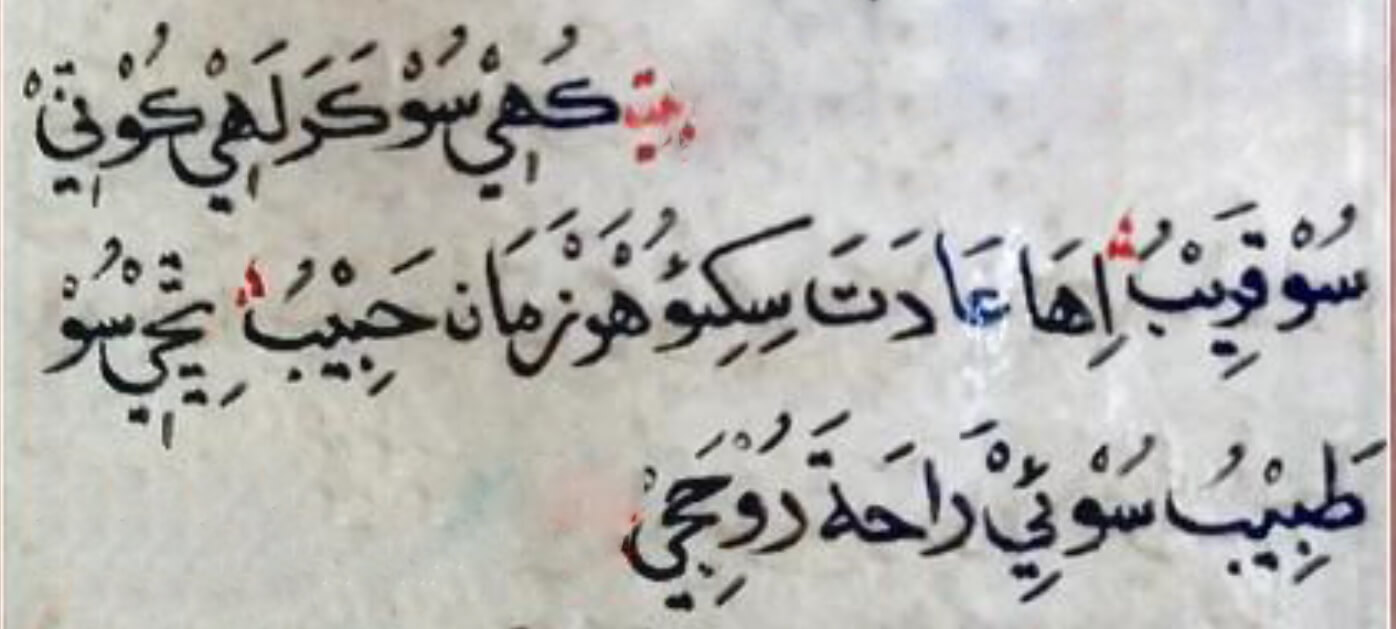 بيت كُهِيْ سُوْ كَرَ لَهِيْ كُوْنِيْ
سُوْ قَرِيْبُ اِهَا عَادَتَ سِكِئو هُوَنْ زَمَانَ حَبِيْبُ تِحِّيْ سُوْ
طَبِيْبُ سُوْئِيْ رَاحَةَ رُوْحَجِيْ